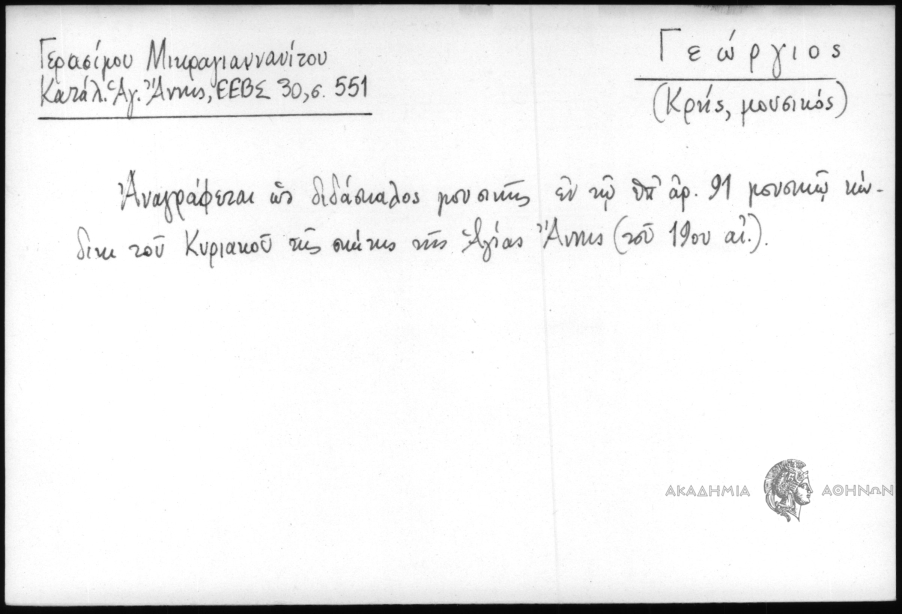 Γερασίμου Μικραγιαννανίτου
Κατάλ. Ἁγ. Ἄννης, ΕΕΒΣ 30, σ. 551
Γεώργιος
(Κρής, μουσικός)
Ἀναγράφεται ὡς διδάσκαλος μουσικῆς ἐν τῷ ὑπ' ἀρ. 91 μουσικῷ κώ-
δικι τοῦ Κυριακοῦ τῆς σκήτης τῆς Ἁγίας Ἄννης (τοῦ 19ου αἰ.).
ΑΚΑΔΗΜΙΑ ΑΘΗΝΩΝ